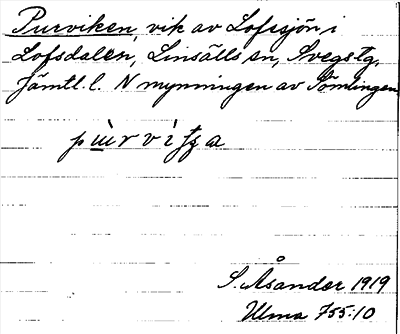 Purviken, vik av Lofssjön i
Lofsdalen, Linsälls sn, Svegs tg,
Jämtl. l. N mynningen av Sömlingen
S. Åsander 1919
Ulma 755:10